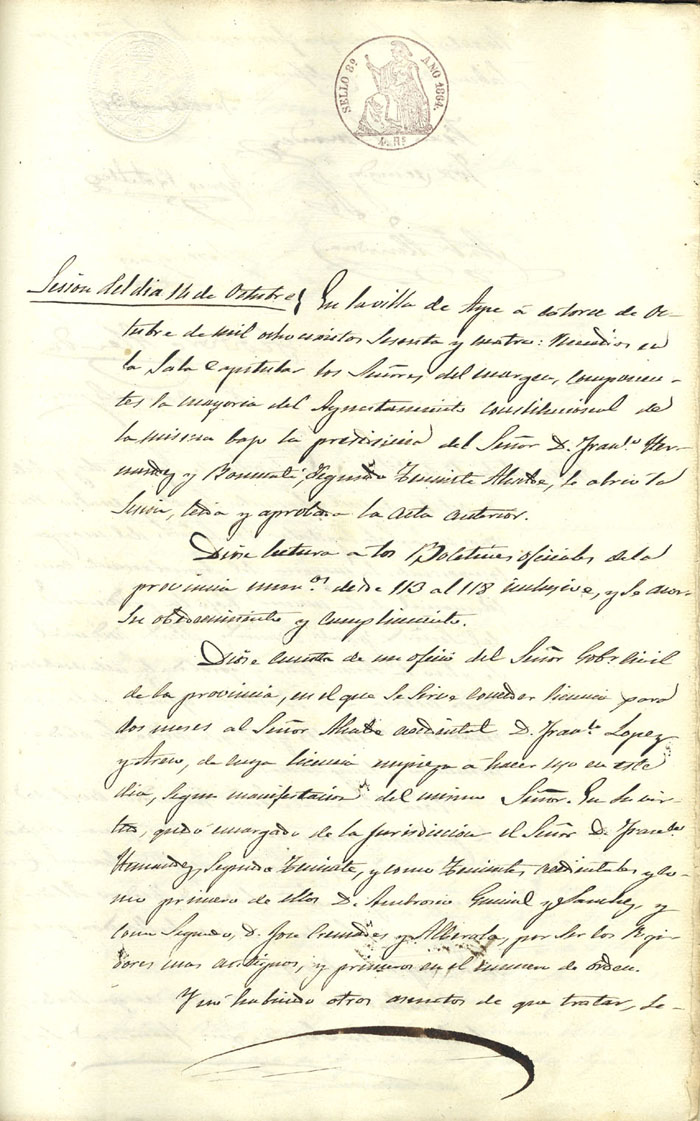 SELLO 8º AÑO 1864.
4 Rs
Sesion del dia 14 de Octubre
En la villa de Aspe á catorce de Oc-
tubre de mil ochocientos sesenta y cuatro: Reunidos en
la Sala Capitular los Señores del margen, componen-
tes la mayoria del Ayuntamiento constitucional de
la misma bajo la presidencia del Señor D. Franco. Her-
nandez y Segundo Teniente Alcalde, se abrio la
sesion, leida y aprobada la acta anterior.
Diose lectura a los Boletines oficiales de la
provincia numos. desde 113 al 118 inclusive, y se acordó
su obedecimiento y cumplimiento.
Diose cuenta de un oficio del Señor Gobr. Civil
de la provincia, en el que se sirve conceder licencia para
dos meses al Señor Alcalde accidental D. Franco. Lopez
y, de cuya licencia empieza á hacer uso en este
dia, segun manifestacion del mismo Señor. En su vir-
tud, quedó encargado de la jurisdiccion el Señor D. Franco.
Hernandez, Segundo Teniente, y como Tenientes accidentales y co-
mo primero de ellos D. Ambrosio y Sanchez, y
como Segundo, D. Jose Cremades y Alberola, por ser los Regi-
dores mas antiguos, y primeros en el numero de orden.
Y no habiendo otros asuntos de que tratar, se-